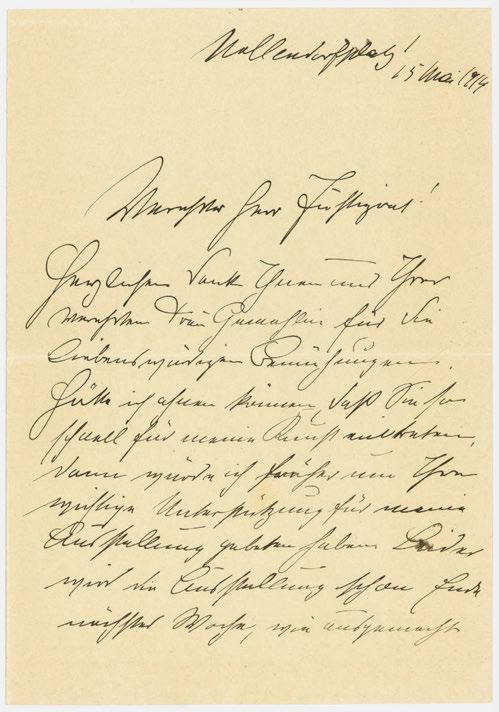 Nollendorfplatz 1
15 Mai 1914
Verehrter Herr Justizrat!
Herzlichen Dank Ihnen und Ihrer
verehrten Frau Gemahlin für die
liebenswürdigen Bemühungen.
Hätte ich ahnen können, daß Sie so
schnell für meine Kunst eintreten,
dann würde ich früher um Ihre
wichtige Unterstützung für meine
Ausstellung gebeten haben. Leider
wird die Ausstellung schon Ende
nächster Woche, wie ausgemacht